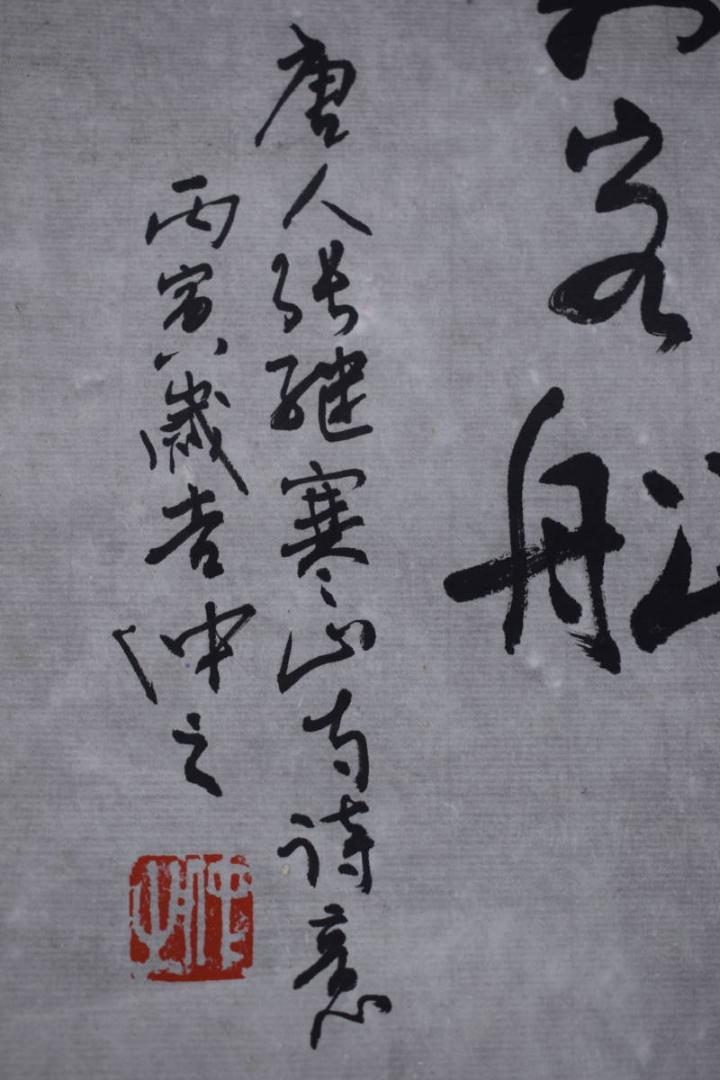 客船
唐人张继寒山寺诗意
丙寅歲吉仲之